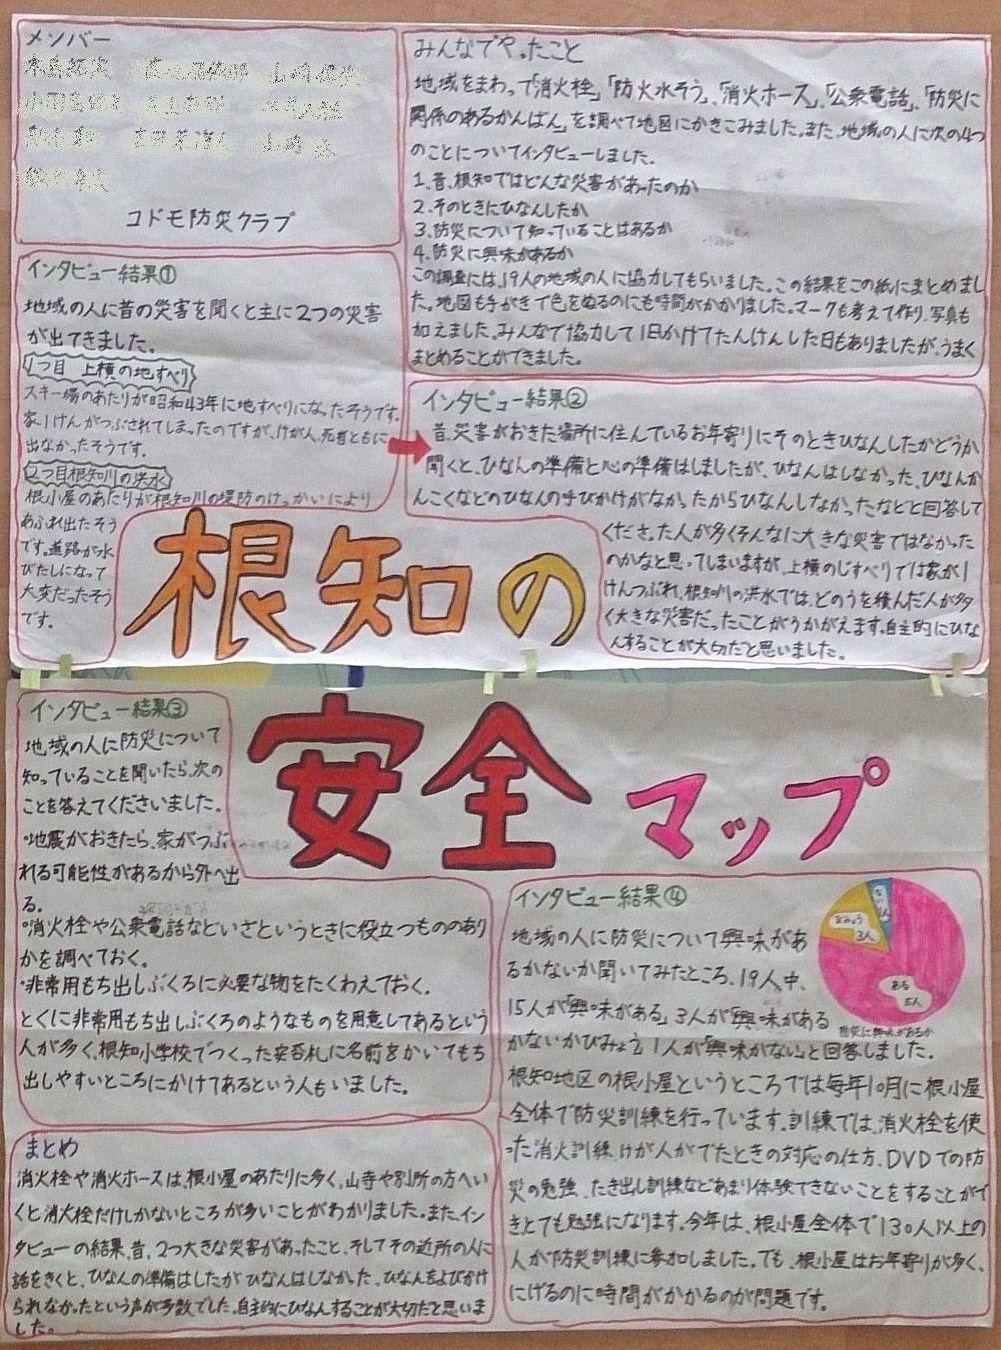 メンバー
コドモ防災クラブ
みんなでやったこと
地域をまわって「消火栓」「防火水そう」、「消火ホース」、「公衆電話」、「防災に
関係のあるかんばん」を調べて地図にかきこみました。また、地域の人に次の4つ
のことについてインタビューしました。
1、昔、根知ではどんな災害があったのか
2、そのときにひなんしたか
3、防災について知っていることはあるか
4、防災に興味があるか
この調査には、19人の地域の人に協力してもらいました。この結果をこの紙にまとめまし
た。地図も手がきで色をぬるのにも時間がかかりました。マークも考えて作り、写真も
加えました。みんなで協力して1日かけてたんけんした日もありましたが、うまく
まとめることができました。
インタビュー結果①
地域の人に昔の災害を聞くと主に2つの災害
が出てきました。
1つ目 上横の地すべり
スキー場のあたりが昭和43年に地すべりになったそうです。
家1けんがつぶされてしまったのですが、けが人、死者ともに
出なかったそうです。
2つ目根知川の洪水
根小屋のあたりが根知川の堤防のけっかいにより
あふれ出たそう
です。道路が水
びたしになって
大変だったそう
です。
インタビュー結果②
昔、災害がおきた場所に住んでいるお年寄りにそのときひなんしたかどうか
聞くと、ひなんの準備と心の準備はしましたが、ひなんはしなかった、ひなんか
んこくなどのひなんの呼びかけがなかったからひなんしなかったなどと回答して
くださった人が多くそんなに大きな災害ではなかった
のかなと思ってしまいますが、上横のじすべりでは家が1
けんつぶれ、根知川の洪水では、どのうを積んだ人が多
く大きな災害だったことがうかがえます。自主的にひな
んすることが大切だと思いました。
根知の
安全マップ
インタビュー結果③
地域の人に防災について
知っていることを聞いたら、次の
ことを答えてくださいました。
・地震がおきたら、家がつぶ
れる可能性があるから外へ出
る。
・消火栓や公衆電話などいざというときに役立つもののあり
かを調べておく。
・非常用もち出しぶくろに必要な物をたくわえておく。
とくに非常用もち出しぶくろのようなものを用意してあるという
人が多く、根知小学校でつくった安否札に名前をかいてもち
出しやすいところにかけてあるという人もいました。
インタビュー結果④
地域の人に防災について興味があ
るかないか聞いてみたところ、19人中、
15人が「興味がある」3人が「興味がある
かないかびみょう」1人が「興味がない」と回答しました。
びみょう
3人
ある
5人
防災に興味があるか
根知地区の根小屋というところでは毎年10月に根小屋
全体で防災訓練を行っています。訓練では、消火栓を使
った消火訓練、けが人がでたときの対応の仕方、DVDでの防
災の勉強、たき出し訓練などあまり体験できないことをすることがで
きとても勉強になります。今年は、根小屋全体で130人以上の
人が防災訓練に参加しました。でも、根小屋はお年寄りが多く、
にげるのに時間がかかるのが問題です。
まとめ
消火栓や消火ホースは、根小屋のあたりに多く、山寺や別所の方へい
くと消火栓だけしかないところが多いことがわかりました。また、イン
タビューの結果、昔、2つ大きな災害があったこと、そしてその近所の人に
話をきくと、ひなんの準備はしたがひなんはしなかった、ひなんをよびかけ
られなかったという声が多数でした。自主的にひなんすることが大切だと思いま
した。